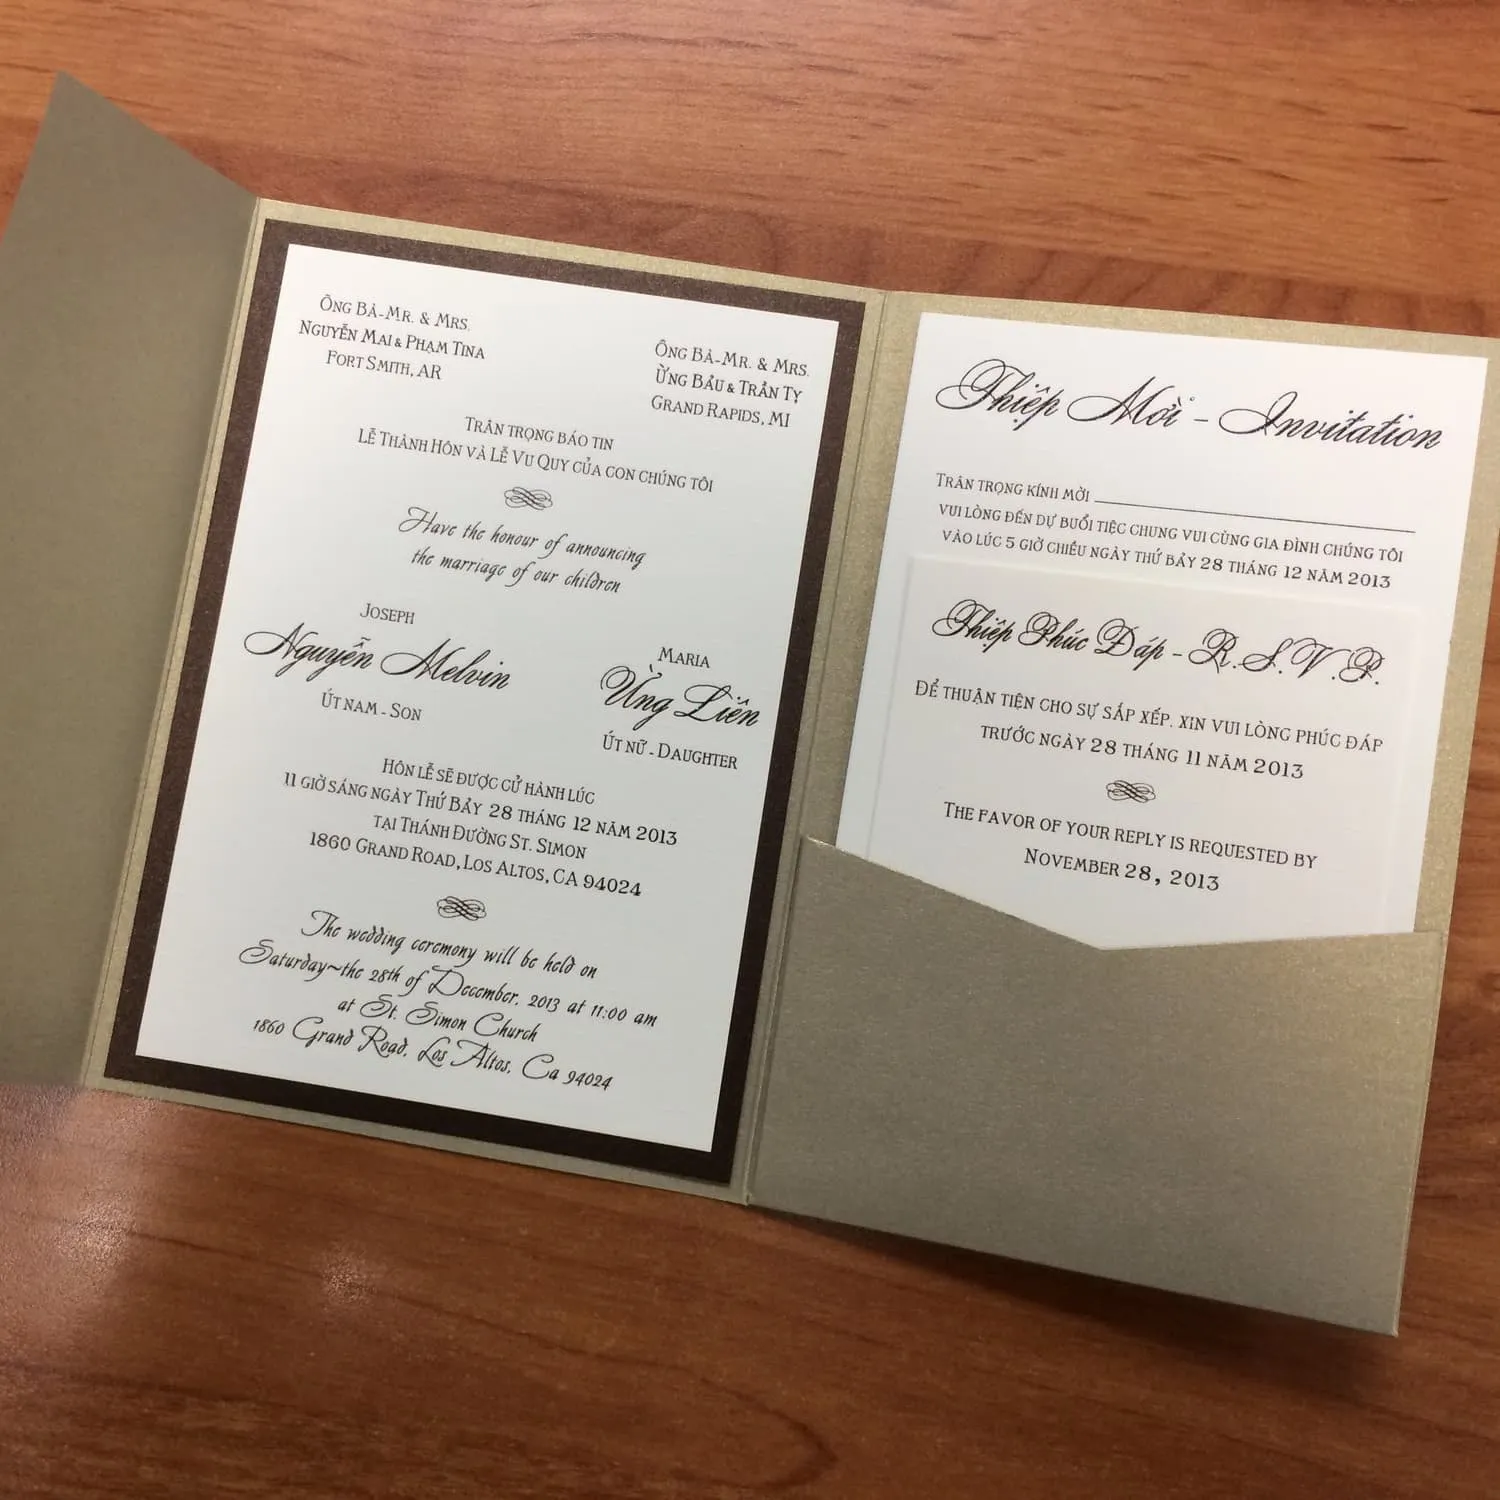 Ông Bà-Mr. & Mrs.
Nguyễn Mai & Phạm Tina
Fort Smith, AR
Ông Bà-Mr. & Mrs.
Ừng Bảu & Trần Ty
Grand Rapids, MI
Trân trọng báo tin
Lễ Thành Hôn và Lễ Vu Quy của con chúng tôi
Have the honour of announcing
the marriage of our children
Joseph
Nguyễn Melvin
Út nam - Son
Maria
Ừng Liên
Út nữ - Daughter
Hôn lễ sẽ được cử hành lúc
11 giờ sáng ngày Thứ Bảy 28 tháng 12 năm 2013
tại Thánh Đường St. Simon
1860 Grand Road, Los Altos, CA 94024
The wedding ceremony will be held on
Saturday~the 28th of December, 2013 at 11:00 am
at St. Simon Church
1860 Grand Road, Los Altos, Ca 94024
Thiệp Mời - Invitation
Trân trọng kính mời
vui lòng đến dự buổi tiệc chung vui cùng gia đình chúng tôi
vào lúc 5 giờ chiều ngày thứ bảy 28 tháng 12 năm 2013
Thiệp Phúc Đáp - R.S.V.P.
Để thuận tiện cho sự sắp xếp, xin vui lòng phúc đáp
trước ngày 28 tháng 11 năm 2013
The favor of your reply is requested by
November 28, 2013